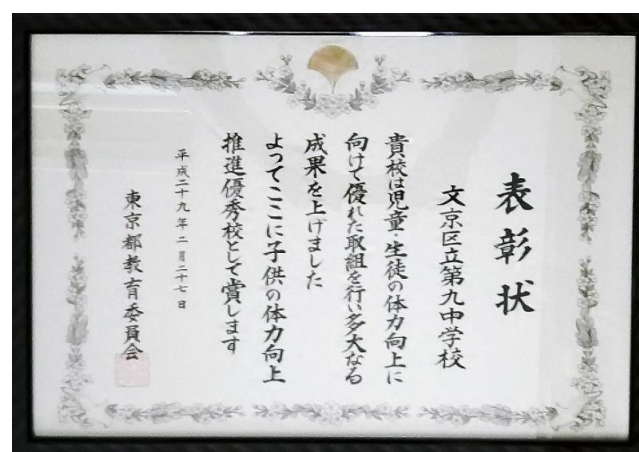 表彰状
文京区立第九中学校
貴校は児童・生徒の体力向上に
向けて優れた取組を行い多大なる
成果を上げました
よってここに子供の体力向上
推進優秀校として賞します
平成二十九年二月二十七日
東京都教育委員会